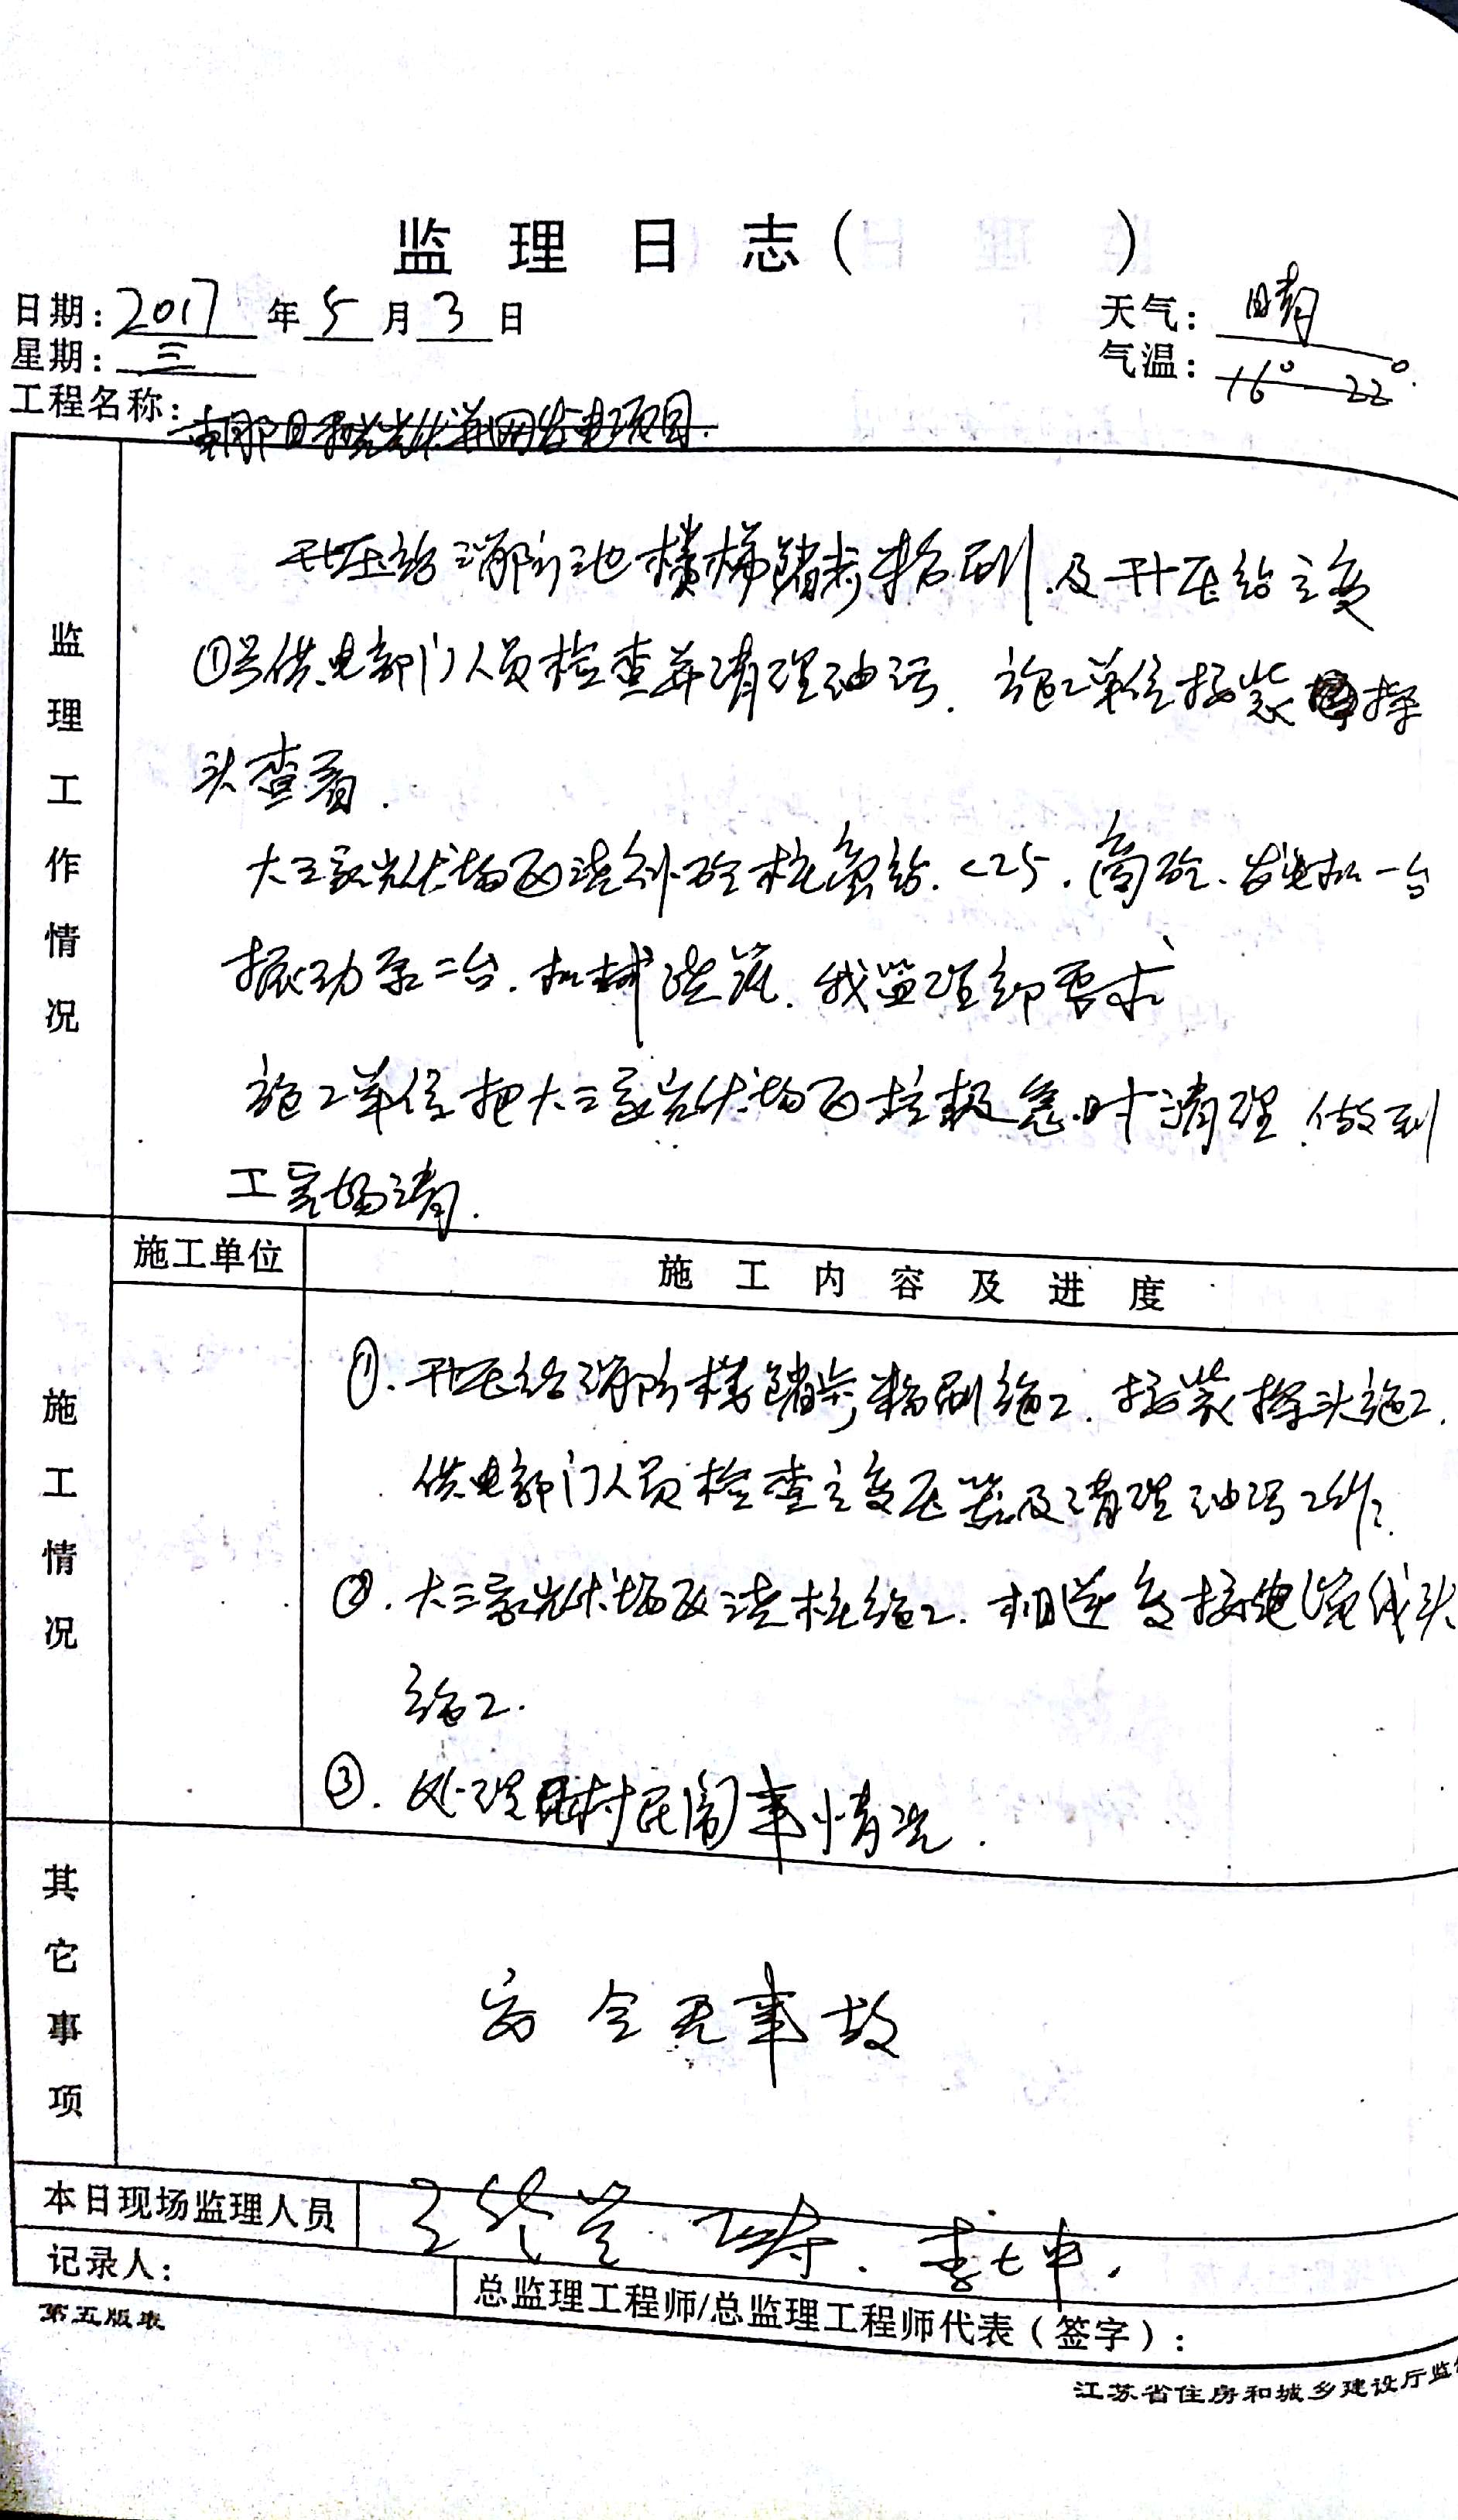 监理日志( )
日期:2017年5月3日
天气:晴
星期:三
气温:16°—22°
工程名称:光伏并网发电项目.
监理工作情况
升压站消防池楼梯踏步粉刷.及升压站主变
①号供电部门人员检查并清理油污.施工单位接装探
头查看.
大三家光伏场区浇砼桩. C25.商砼.发电机一台
振动泵二台.机械浇筑.我监理部要求
施工单位把大三家光伏场区垃圾急时清理.做到
工完场清.
施工单位
施工内容及进度
施工情况
①.升压站消防楼踏步粉刷施工.接装探头施工.
供电部门人员检查主变压器及清理油污工作.
②.大三家光伏场区浇桩施工.接电缆线头
施工.
③.处理村民闹事情况.
其它事项
安全无事故
本日现场监理人员
记录人:
总监理工程师/总监理工程师代表(签字):
第五版表
江苏省住房和城乡建设厅监